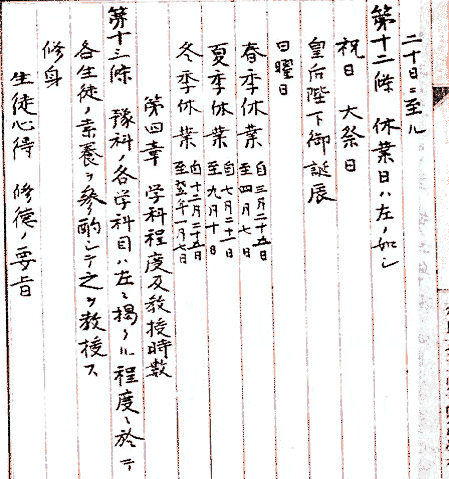 二十日ニ至ル
第十二條 休業日ハ左ノ如シ
祝日 大祭日
皇后陛下御誕辰
日曜日
春季休業 自三月二十五日 至四月七日
夏季休業 自七月二十一日 至九月十日
冬季休業 自十二月二十五日 至翌年一月七日
第四章 学科程度及教授時数
第十三條 豫科ノ各学科目ハ左ニ掲クル程度ニ於テ
各生徒ノ素養ヲ參酌シテ之ヲ教授ス
修身
生徒心得 修德ノ要旨